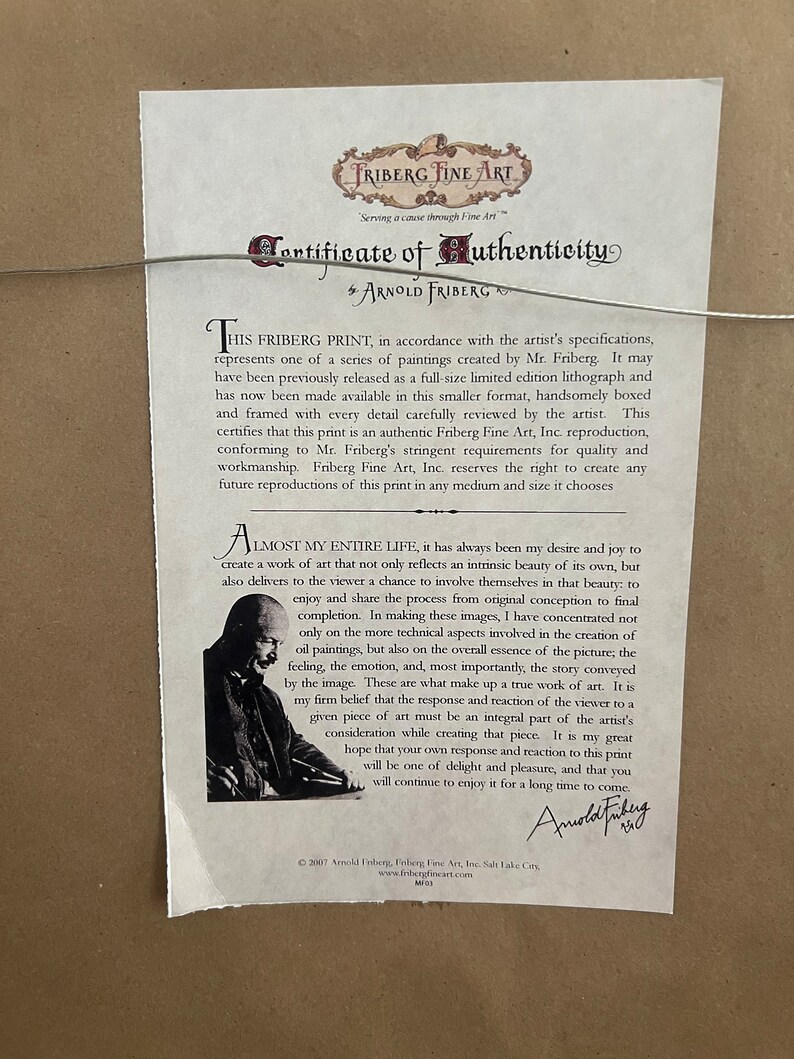 FRIBERG FINE ART
"Serving a cause through Fine Art"™
Certificate of Authenticity
by ARNOLD FRIBERG
THIS FRIBERG PRINT, in accordance with the artist's specifications,
represents one of a series of paintings created by Mr. Friberg. It may
have been previously released as a full-size limited edition lithograph and
has now been made available in this smaller format, handsomely boxed
and framed with every detail carefully reviewed by the artist. This
certifies that this print is an authentic Friberg Fine Art, Inc. reproduction,
conforming to Mr. Friberg's stringent requirements for quality and
workmanship. Friberg Fine Art, Inc. reserves the right to create any
future reproductions of this print in any medium and size it chooses
ALMOST MY ENTIRE LIFE, it has always been my desire and joy to
create a work of art that not only reflects an intrinsic beauty of its own, but
also delivers to the viewer a chance to involve themselves in that beauty: to
enjoy and share the process from original conception to final
completion. In making these images, I have concentrated not
only on the more technical aspects involved in the creation of
oil paintings, but also on the overall essence of the picture; the
feeling, the emotion, and, most importantly, the story conveyed
by the image. These are what make up a true work of art. It is
my firm belief that the response and reaction of the viewer to a
given piece of art must be an integral part of the artist's
consideration while creating that piece. It is my great
hope that your own response and reaction to this print
will be one of delight and pleasure, and that you
will continue to enjoy it for a long time to come.
Arnold Friberg
RSA
© 2007 Arnold Friberg, Friberg Fine Art, Inc. Salt Lake City,
www.fribergfineart.com
MF03